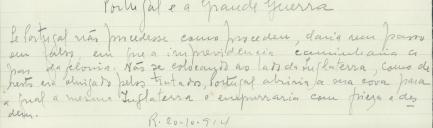 Portugal e a Grande Guerra
Se Portugal não procedesse como procedeu, daria um passo
em falso, em que a imprevidencia caminharia a
par da felonia. Não se collocando ao lado da Inglaterra, como de
resto era obrigado pelos tratados, Portugal abriria a sua cova para
a qual a mesma Inglaterra o empurraria com frieza e des
dem.
R. 20-10-914